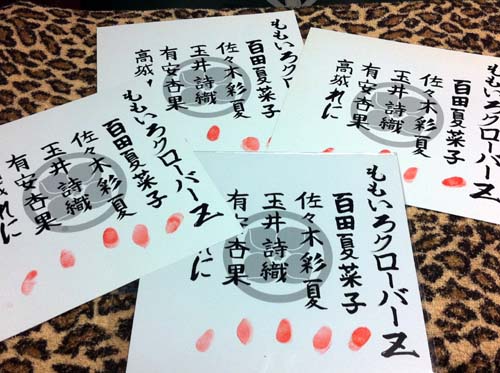 ももいろクロ
百田夏菜子
佐々木彩夏
玉井詩織
有安杏果
高城
ももいろクローバーZ
百田夏菜子
佐々木彩夏
玉井詩織
有安杏果
高城れに
ももいろクローバーZ
百田夏菜子
佐々木彩夏
玉井詩織
有安杏果
高城れに
ももいろクローバーZ
百田夏菜子
佐々木彩夏
玉井詩織
有安杏果
れに